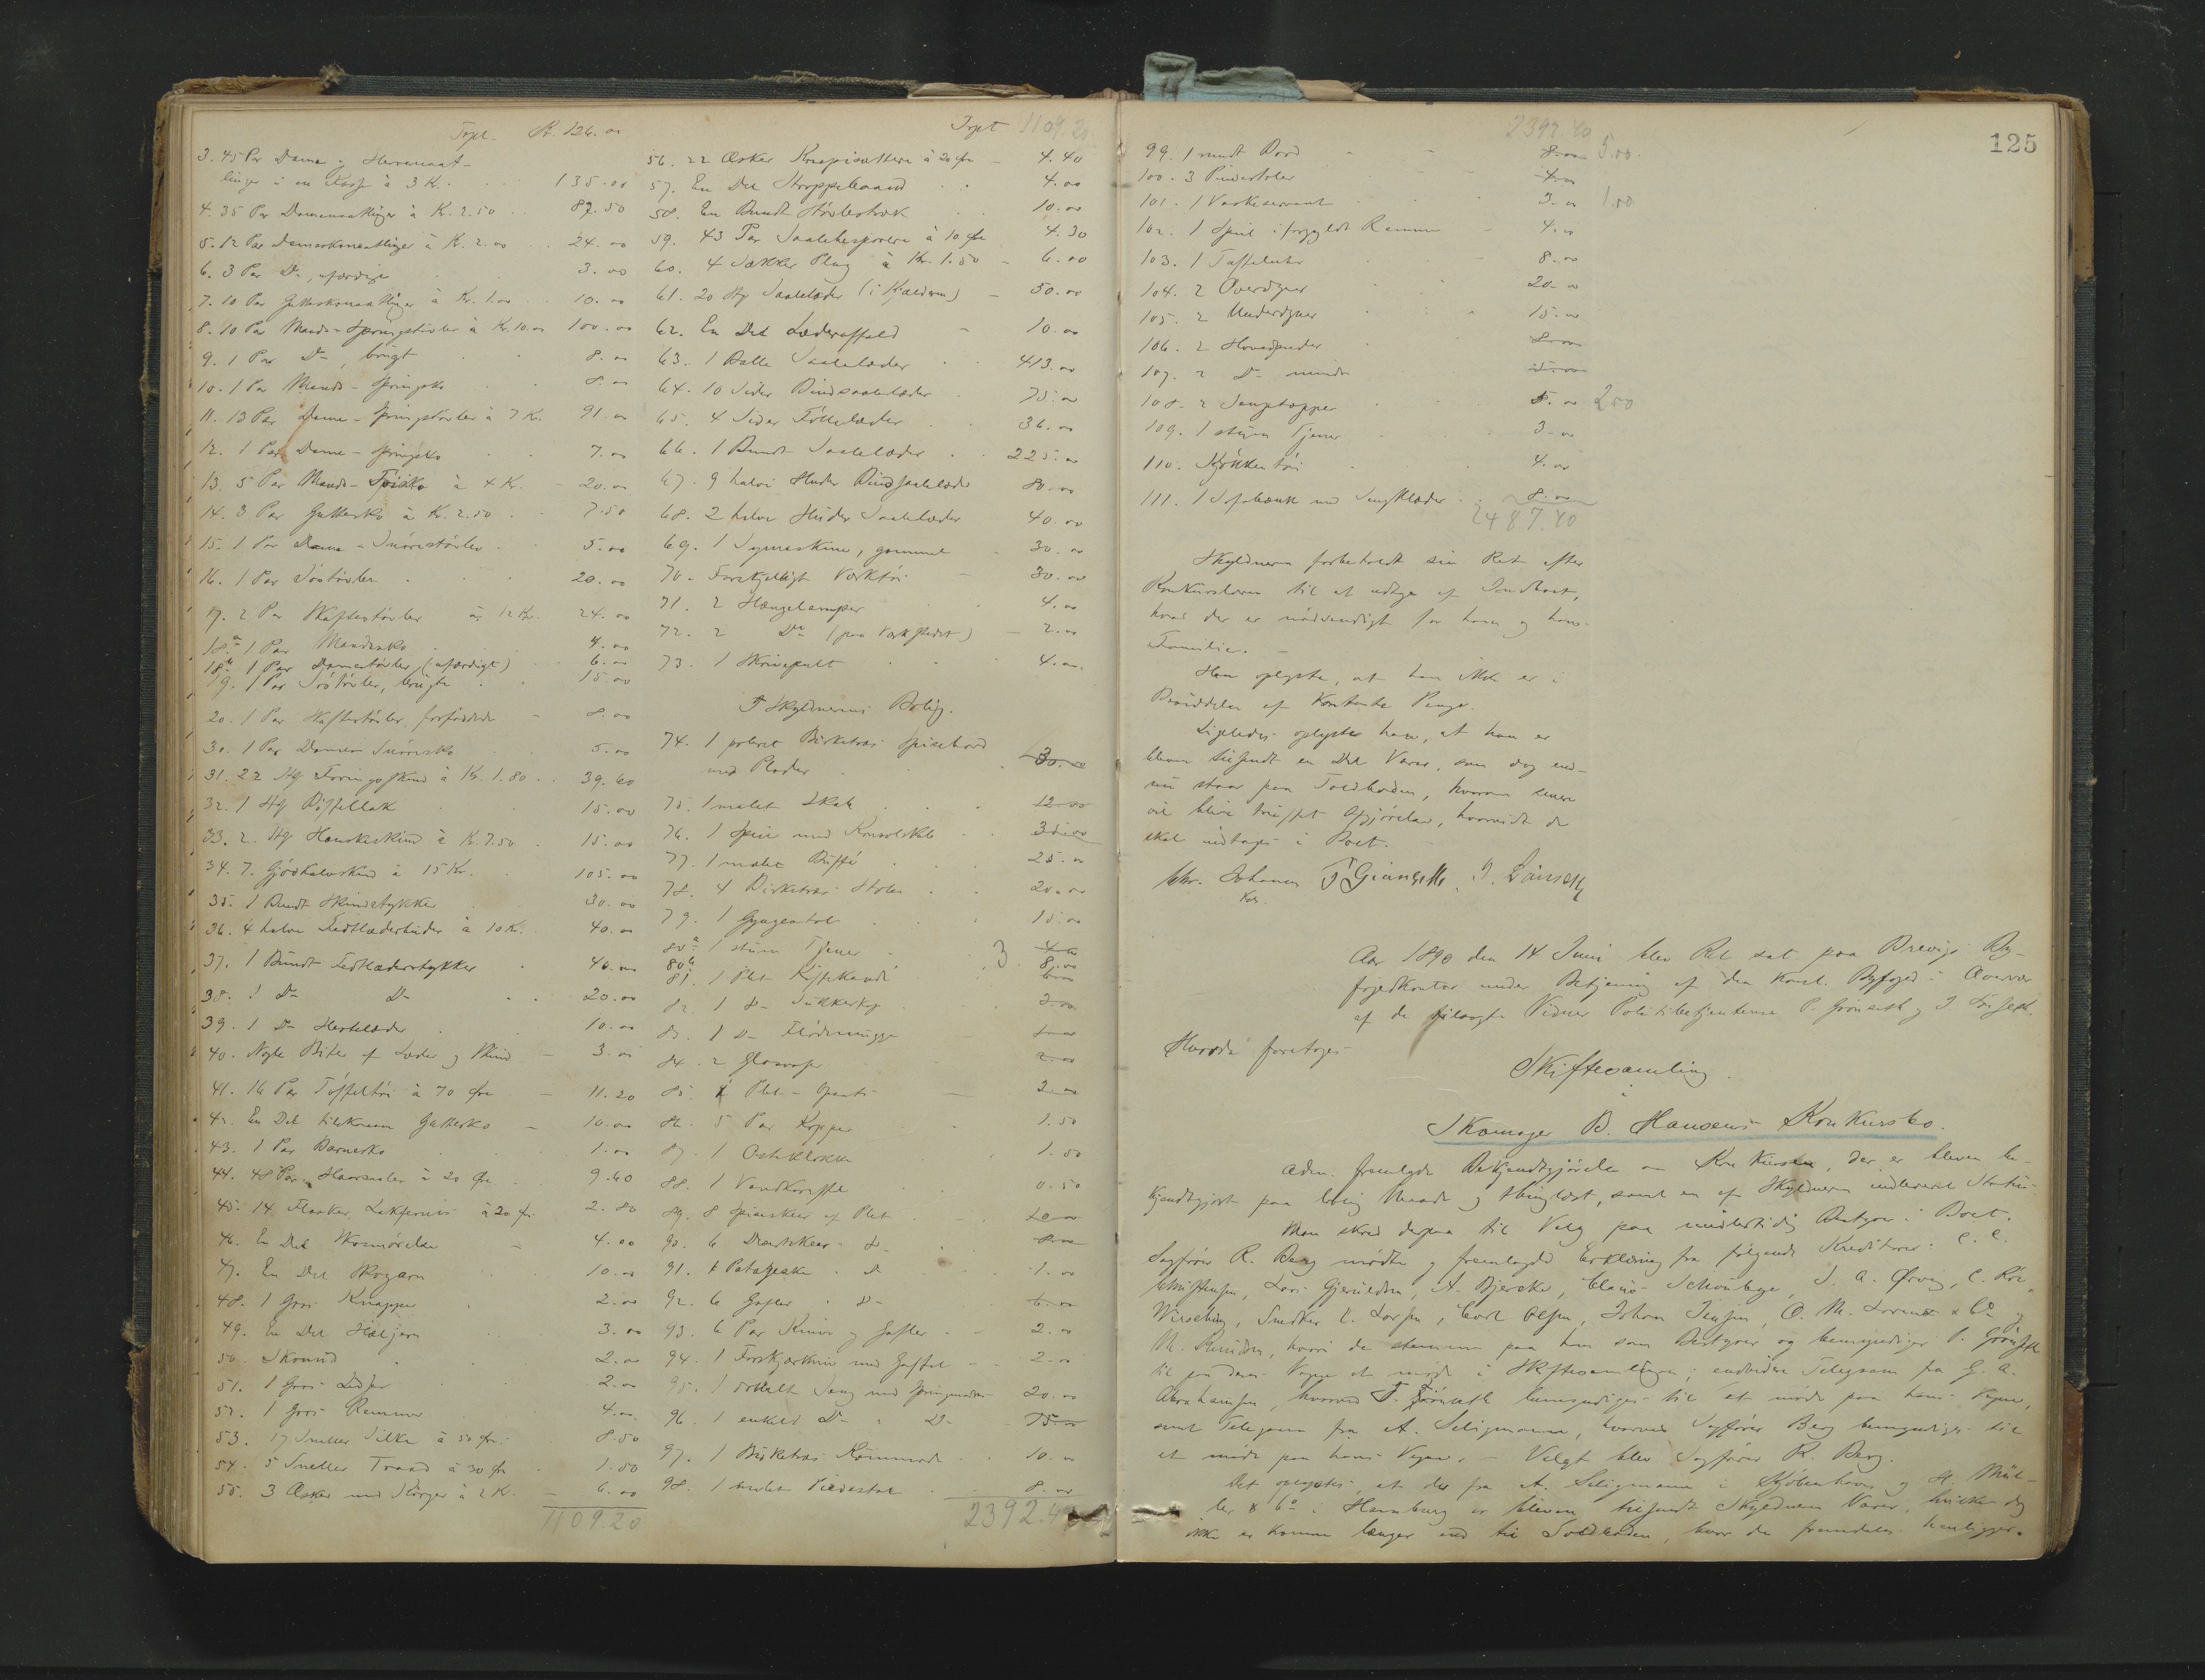 Tspt. Kr. 126.00
3. 45 Par Dame og Herrenaat-
linger i en Kasse à 3 Kr. 135.00
4. 35 Par Damenaatlinger à Kr. 2.50 87.50
5. 12 Par Dameskonaatlinger à Kr. 2.00 24.00
6. 3 Par Do, ufærdige 3.00
7. 10 Par Gutteskonaatlinger à Kr. 1.00 10.00
8. 10 Par Mands-Springstövler à Kr. 10.00 100.00
9. 1 Par Do, brugt 8.00
10. 1 Par Mands-Springsko 8.00
11. 13 Par Dame-Springstövler à 7 Kr. 91.00
12. 1 Par Dame-Springsko 7.00
13. 5 Par Mands- à 4 Kr. 20.00
14. 3 Par Guttesko à Kr. 2.50 7.50
15. 1 Par Dame-Snörestövler 5.00
16. 1 Par Söstövler 20.00
17. 2 Par Skaftestövler à 12 Kr. 24.00
18a 1 Par Mandssko 4.00
18b 1 Par Damestövler, (ufærdigt) 6.00
19. 1 Par Söstövler, brugte 15.00
20. 1 Par Skaftestövler forföddede 8.00
30. 1 Par Dame Snöresko 5.00
31. 22 Skind à Kr. 1.80 39.60
32. 1 15.00
33. 2 Handskeskind à Kr. 7.50 15.00
34. 7 Gjödkalveskind à 15 Kr. 105.00
35. 1 Bundt Skindstykker 30.00
36. 4 halve Fedtlæderhuder à 10 Kr. 40.00
37. 1 Bundt Fedtlæderstykker 40.00
38. 1 Do Do 20.00
39. 1 Do Hestelæder 10.00
40. Nogle Biter af Læder og Skind 3.00
41. 16 Par Töffeltöi à 70 Øre 11.20
42. En Del tilskaaren Guttesko 10.00
43. 1 Par Barnesko 1.00
44. 48 Par Haarsaaler à 20 Øre 9.60
45. 14 Flasker Lakfernis à 20 Ør. 2.80
46. En Del Skosmörelse 4.00
47. En Del Skogarn 10.00
48. 1 Gros Knapper 2.00
49. En Del Hæljern 3.00
50. Skosnid 2.00
51. 1 Gros Lidser 2.00
52. 1 Gros Remmer 4.00
53. 17 Sneller Silke à 50 Øre 8.50
54. 5 Sneller Traad à 30 Ør 1.50
55. 3 Æsker med à 2 K. 6.00
1109.20
Tspt 1109.20
56. 22 Æsker à 20 Øre 4.40
57. En Del Stroppebaand 4.00
58. En Bundt 10.00
59. 43 Par à 10 Øre 4.30
60. 4 Sække Plug à Kr. 1.50 6.00
61. 20 Kg Saalelæder (i Kjælderen) 50.00
62. En Del Læderaffald 10.00
63. 1 Balle Saalelæder 413.00
64. 10 Sider Bindsaalelæder 75.00
65. 4 Sider 36.00
66. 1 Bundt Saalelæder 225.00
67. 9 halve Huder Bindsaalelæder 80.00
68. 2 halve Huder Saalelæder 40.00
69. 1 Symaskine, gammel 30.00
70. Forskjelligt Værktöi 30.00
71. 2 Hængelamper 4.00
72. 2 Do (paa Værkstedet) 2.00
73. 1 Skrivepult 4.00
I Skyldnerens Bolig.
74. 1 poleret Birketræs Spisebord
med Plader 30.00
75. 1 malet Skab 12.00
76. 1 Speil med Konsolskab 35.00
77. 1 malet Buffé 25.00
78. 4 Birketræs Stoler 20.00
79. 1 Gyngestol 15.00
80a 1 stum Tjener 4.00
80b 3 8.00
81. 1 Plet Kaffekande
82. 1 Do Sukkerkop 3.00
83. 1 Do Flödemugge
84. 2 Glas 2.00
85. Plet- 2.00
86. 5 Par Kopper 1.50
87. 1 Osteklokke 1.50
88. 1 Vandkaraffel 0.50
89. 8 Spiseskeer af Plet
90. 6 Dessertskeer Do
91. 1 Potageske Do 1.00
92. 6 Gafler Do 6.00
93. 6 Par Knive og Gafler 2.00
94. 1 Forskjærkniv med Gaffel 2.00
95. 1 dobbelt Seng med Springmadras 20.00
96. 1 enkelt Do Do 15.00
97. 1 Birketræs Kommode 10.00
98. 1 malet Piedestal 8.00
2392.40
2392.40
125
99. 1 rundt Bord 8.00 5.00
100. 3 Pindestoler 4.00
101. 1 Vaskeservant 3.00 1.00
102. 1 Speil i forgyldt Ramme 4.00
103. 1 Taffeluhr 8.00
104. 2 Overdyner 20.00
105. 2 Underdyner 15.00
106. 2 Hovedpuder 8.00
107. 2 Do mindre 5.00
108. 2 Sengetæpper 5.00 2.00
109. 1 stum Tjener 3.00
110. Kjökkentöi 4.00
111. 1 Sofabænk med Sengklæder 8.00
2487.40
Skyldneren forbeholdt sin Ret efter
Konkursloven til at udtage af Indboet,
hvad der er nödvendigt for ham og hans
Familie.
Han oplyste, at han ikke er i
Besiddelse af Kontante Penge.
Ligeledes oplyste han, at han er
bleven tilsendt en Del Varer, som dog end-
nu staar paa Toldboden, hvorom senere
vil blive truffet Afgjörelse, hvorvidt de
skal indtages i Boet.
Chr. Johansen
Kst.
Aar 1890 den 14 Juni blev Ret sat paa Brevigs By-
fogedkontor under Betjening af den konst. Byfoged i Overvær
af de tilsagte Vidner Politibetjentene P. Grönseth og J. Larssen.
Hvorda foretoges
Skiftesamling
i
Skomager B. Hansens Konkursbo.
Adm. fremlagde Bekjendtgjörelse om Konkursen, der er bleven be-
kjendtgjort paa lovlig Maade og thinglæst, samt en af Skyldneren indleveret Status.
Man skred derpaa til Valg paa midlertidig Bestyrer i Boet.
Sagförer R. Berg mödte og fremlagde Erklæring fra fölgende Kreditorer: C. C.
Christensen, Lars Gjeruldsen, A. Bjercke, Claus Schönberge, J. A. Ørvig, C. Röe,
Wirsching, Snedker E. Larsen, Carl Olsen, Johan Jensen, O. M. Lorentz & Co og
M. hvori de stemmer paa ham som Bestyrer og bemyndiger P. Grönseth
til paa deres Vegne at möde i Skiftesamlingen; endvidere Telegram fra G. A.
Abrahamsen, hvorved P. Grönseth bemyndiges til at möde paa hans Vegne,
samt Telegram fra A. Seligmann, hvorved Sagförer Berg bemyndiges til
at möde paa hans Vegne. – Valgt blev Sagförer R. Berg.
Det oplystes, at der fra A. Seligmann i Kjöbenhavn og H. Mül-
ler & Co i Hamburg er bleven tilsendt Skyldneren Varer, hvilke dog
ikke er kommen længer end til Toldboden, hvor de fremdeles henligger.